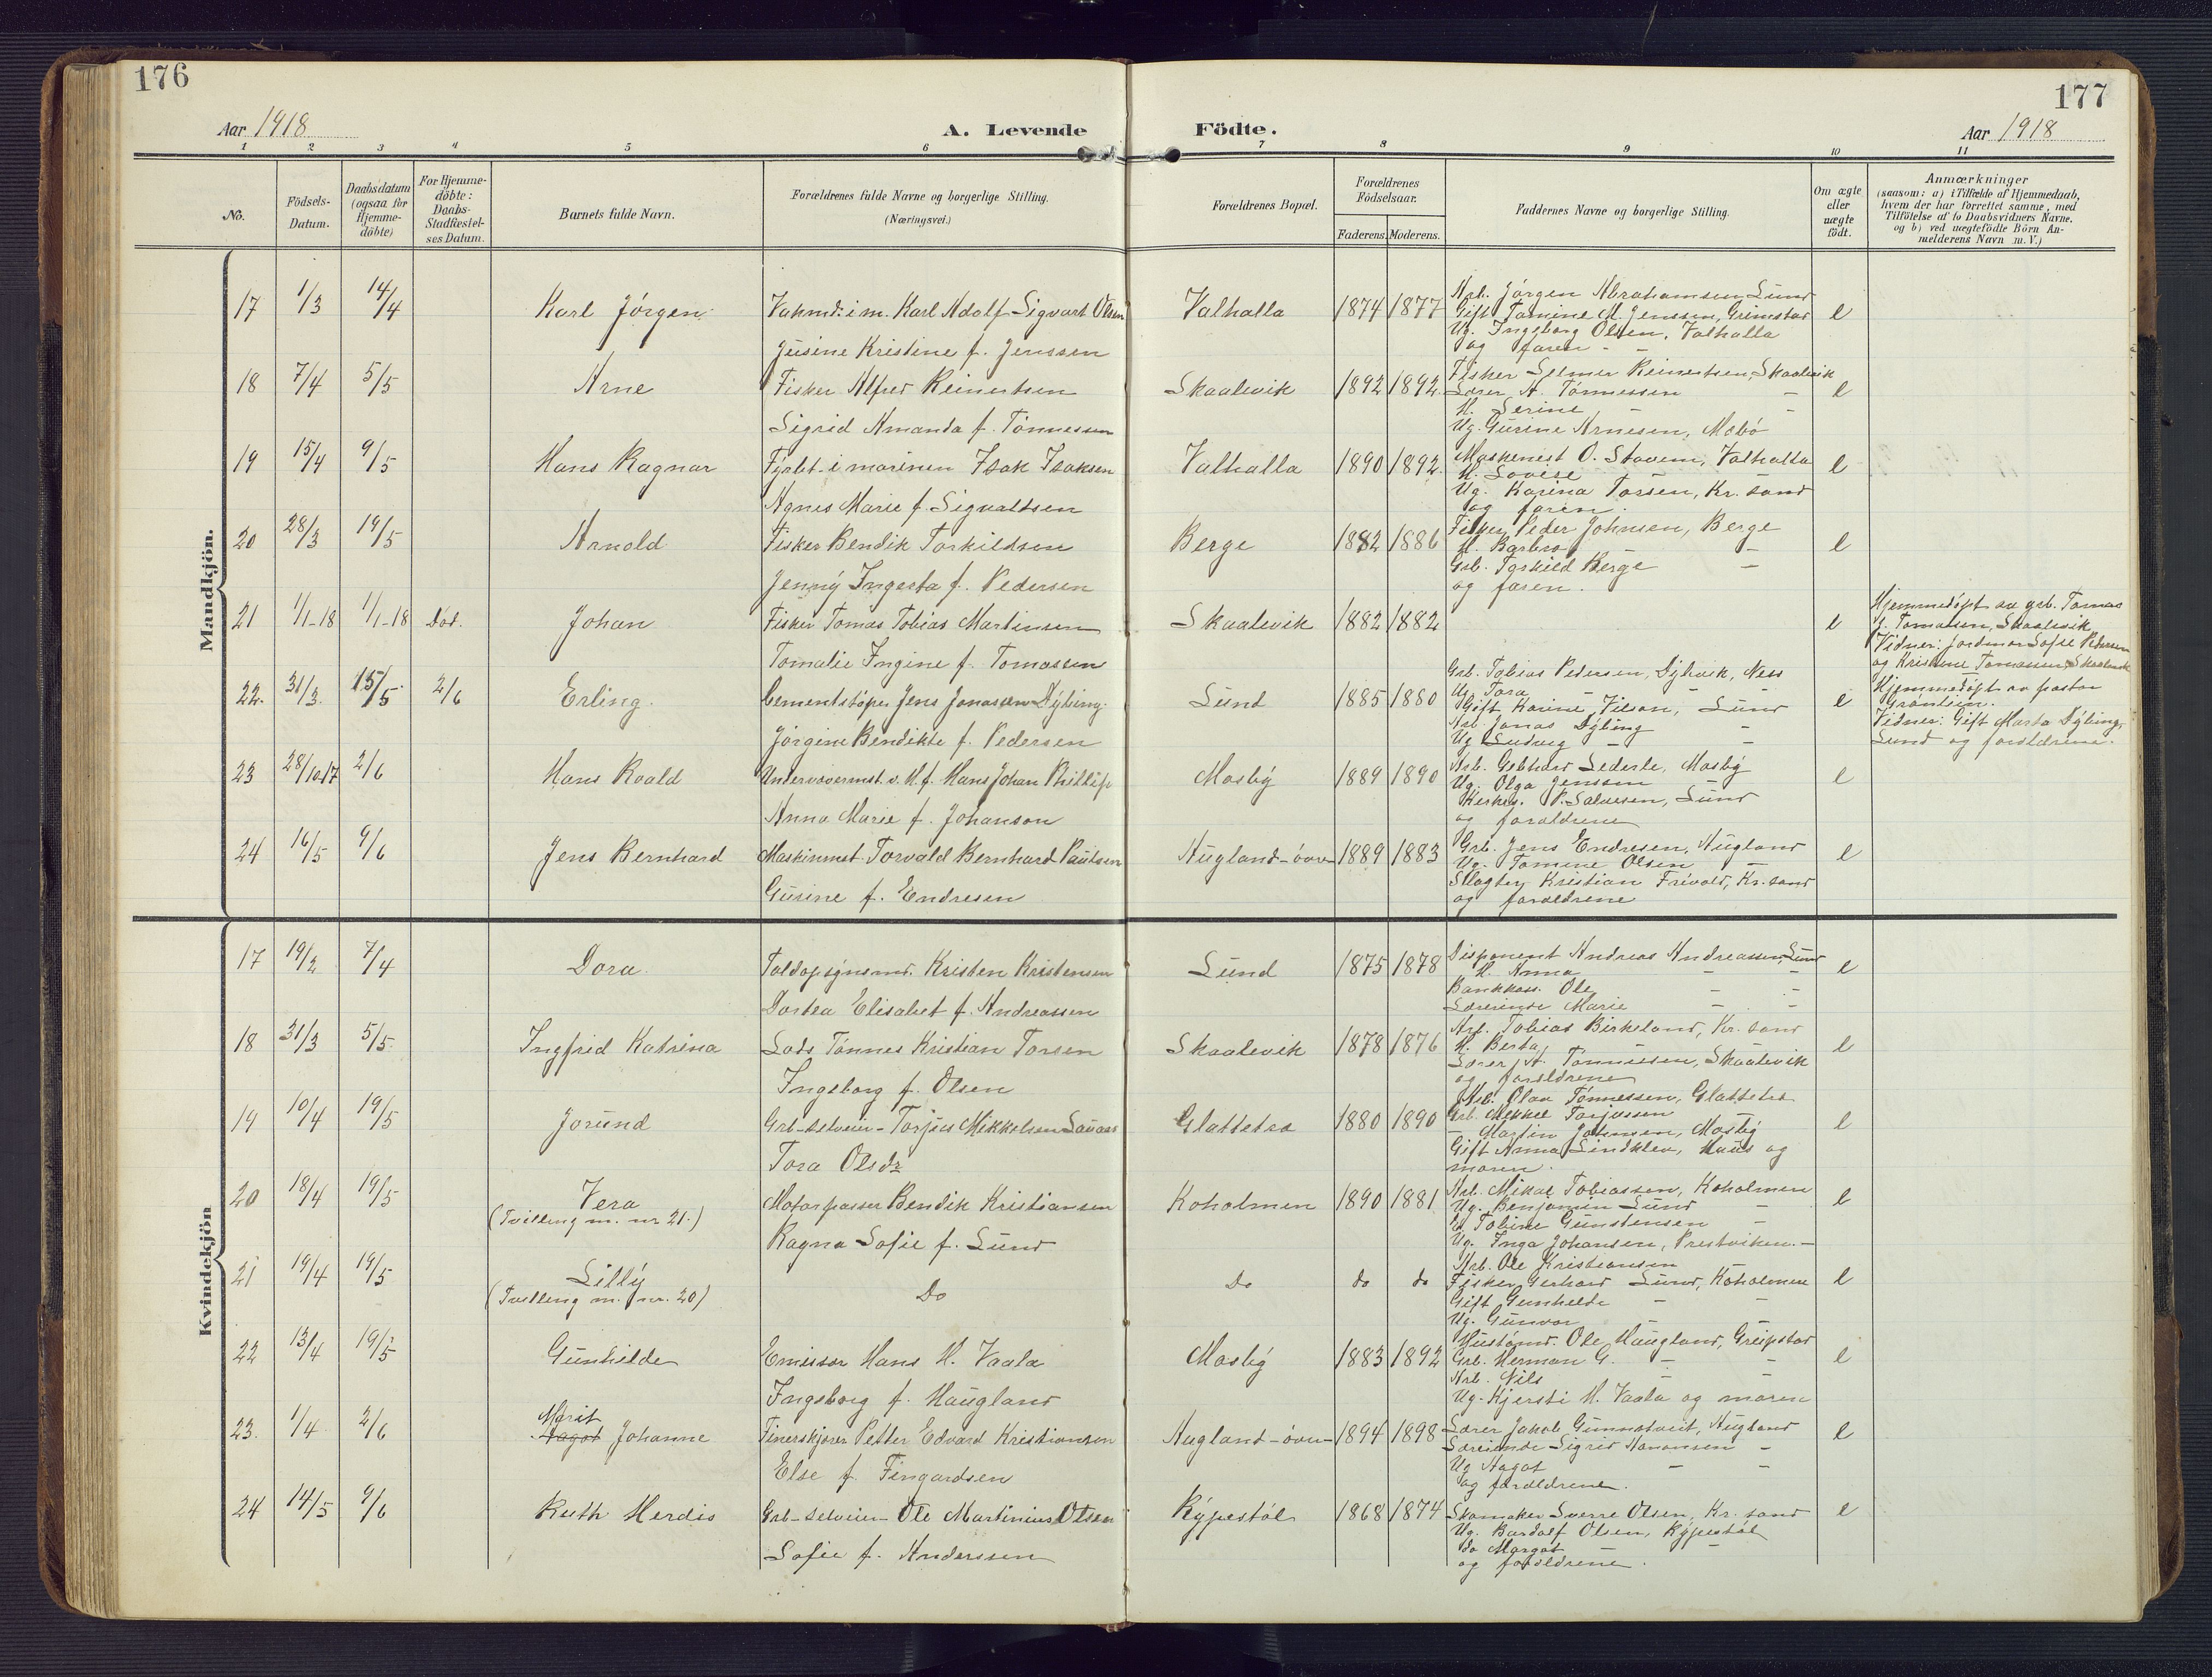 176
177
Aar 1918
A. Levende
Födte.
Aar 1918
1 2 3 4 5 6 7 8 9 10 11
No.
Födsels-
Datum.
Daabsdatum
(ogsaa for
Hjemme-
döbte)
For Hjemme-
döbte:
Daabs-
Stadfæstel-
ses Datum.
Barnets fulde Navn.
Forældrenes fulde Navne og borgerlige Stilling.
(Næringsvei.)
Forældrenes Bopæl.
Forældrenes
Födselsaar.
Faderens. Moderens.
Faddernes Navne og borgerlige Stilling.
Om ægte
eller
uægte
födt.
Anmærkninger
(saasom: a) i Tilfælde af Hjemmedaab,
hvem der har forrettet samme, med
Tilföielse af to Daabsvidners Navne.
og b) ved uægtefödte Börn An-
melderens Navn m. V.)
Mandkjön.
17 1/3 14/4 Karl Jörgen Karl Adolf Sigvart Olsen Valhalla 1874 1877 e
Jusine Kristine f. Jenssen
Arb. Jörgen Abrahamsen Lund
Gift Tomine M. Jenssen, Grimstad
Ug. Ingeborg Olsen, Valhalla
og faren
18 7/4 5/5 Arne Fisker Alfred Reinertsen Skaalevik 1892 1892 e
Sigrid Amanda f. Tönnessen
Fisker Selmer Reinertsen, Skaalevik
Lærer A. Tönnessen —
H. Serine — —
Ug. Gurine Arnesen, Mebö
19 15/4 9/5 Hans Ragnar Fyrbt. i marinen Isak Isaksen Valhalla 1890 1892 e
Agnes Marie f. Sigvaldsen
Maskenist O. Stavem, Valhalla
H. Lovise — —
Ug. Karina Torsen, Kr. sand
og faren.
20 28/3 19/5 Arnold Fisker Bendik Torkildsen Berge 1882 1886 e
Jenny Ingerta f. Pedersen
Fisker Peder Johnsen, Berge
H. Barbro —
Grb. Torkild Berge —
og faren.
21 1/1-18 1/1-18 Död. Johan Fisker Tomas Tobias Martinsen Skaalevik 1882 1882 e
Tomalie Ingine f. Tomassen
Hjemmedöpt av grb. Tomas
J. Tomassen, Skaalevik
Vidner: Jordmor Sofie Pedersen
og Kristine Tomassen, Skaalevik
22. 31/3 15/5 2/6 Erling. Cementstöper Jens Jonassen Dybing Lund 1885 1880 e
Jörgine Bendikte f. Pedersen
Grb. Tobias Pedersen, Dybvik, Ness
Ug. Tora — —
Gift Karine Nilson, Lund
Arb. Jonas Dybing —
Ug. Ludvig — —
Hjemmedöpt av pastor
Gröntien.
Vidner: Gift Marta Dybing,
Lund og foreldrene.
23 28/10 17 2/6 Hans Roald Undervævermst. v. H.f. Hans Johan Phillip Mosby 1889 1890 e
Anna Marie f. Johanson
Arb. Gebhard Lederle, Mosby
Ug. Olga Jenssen
Kirkeg. P. Salvesen, Lund
og foreldrene
24 16/5 9/6 Jens Bernhard Maskinmst. Torvald Bernhard Paulsen Augland-övre 1889 1883 e
Gusine f. Endresen
Grb. Jens Endresen, Augland
Ug. Tomine Olsen —
Slagter Kristian Frivold, Kr. sand
og foreldrene
Kvindekjön
17 19/2 7/4 Dora Toldopsynsmd. Kristen Kristensen Lund 1875 1878 e
Dortea Elisabet f. Andreassen
Disponent Andreas Andreassen, Lund
H. Anna — —
Bankkass. Ole — —
Lærerinde Marie — —
18 31/3 5/5 Ingfrid Katrina Lods Tönnes Kristian Torsen Skaalevik 1878 1876 e
Ingeborg f. Olsen
Arb. Tobias Birkeland, Kr. sand
H. Berta — —
Lærer A. Tönnessen, Skaalevik
og foreldrene
19 10/4 19/5 Jorund Grb-selveier- Torjus Mikkelsen Glattetra 1880 1890 e
Tora Olsdr
Arb. Olav Tönnessen, Glattetra
Grb. Mikkel Torjussen
— Martin Johnsen, Mosby
Gift Anna Lindklev, Haus og
moren.
20 18/4 19/5 Vera Motorpasser Bendik Kristiansen Koholmen 1890 1881 e
(Tvilling m. nr 21.)
Ragna Sofie f. Lund
Arb. Mikal Tobiassen, Koholmen
Ug. Benjamin Lund —
Ug. Tobine Gunstensen —
Ug. Inga Johansen, Prestviken.—
21 19/4 19/5 Lilly Do Do do do e
(Tvilling m. nr. 20)
Arb. Ole Kristiansen
Fisker Gerhard Lund, Koholmen
Gift Gunhilde — —
Ug. Gunvor — —
22 13/4 19/5 Gunhilde Emissær Hans H. Vaala Mosby 1883 1892 e
Ingeborg f. Haugland
Ole Haugland, Greipstad
Grb. Herman G. — —
Arb. Nils — —
Ug. Kjersti H. Vaala og moren
23. 1/4 2/6 Marit
Aagot Johanne Finerskjærer Petter Edvard Kristiansen Augland-övre 1894 1898 e
Else f. Fingardsen
Lærer Jakob Gumnstveit, Augland
Lærerinde Sigrid Aanonsen —
Ug. Aagot — —
og foreldrene.
24 14/5 9/6 Ruth Herdis Grb-selveier- Ole Martinius Olsen Rypestöl 1868 1874 e
Sofie f. Anderssen
Skomaker Sverre Olsen, Kr. sand
Ug. Bardolf Olsen, Rypestöl
do Margot — —
og foreldrene.